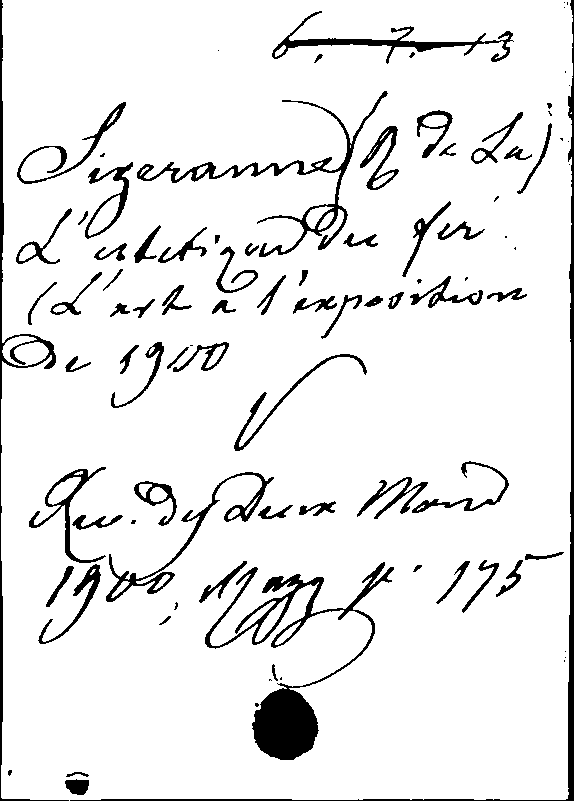 6. 7. 13
Sizeranne (R. de La)
L'estetique du fer
(L'art a l'exposition
de 1900
Rev. des Deux Mond
1900, Magg p. 175